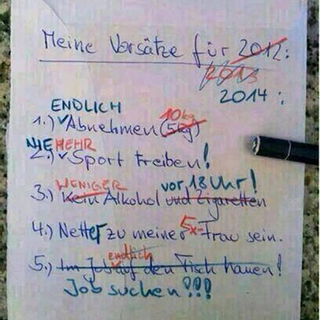 Meine Vorsätze für 2012:
2013
2014:
ENDLICH 10kg
1.) Abnehmen (5kg)
NIE MEHR
2.) Sport treiben!
WENIGER vor 18 Uhr!
3.) Kein Alkohol und Zigaretten
4.) Netter zu meiner 5x Frau sein.
endlich
5.) Im Job auf den Tisch hauen!
Job suchen!!!